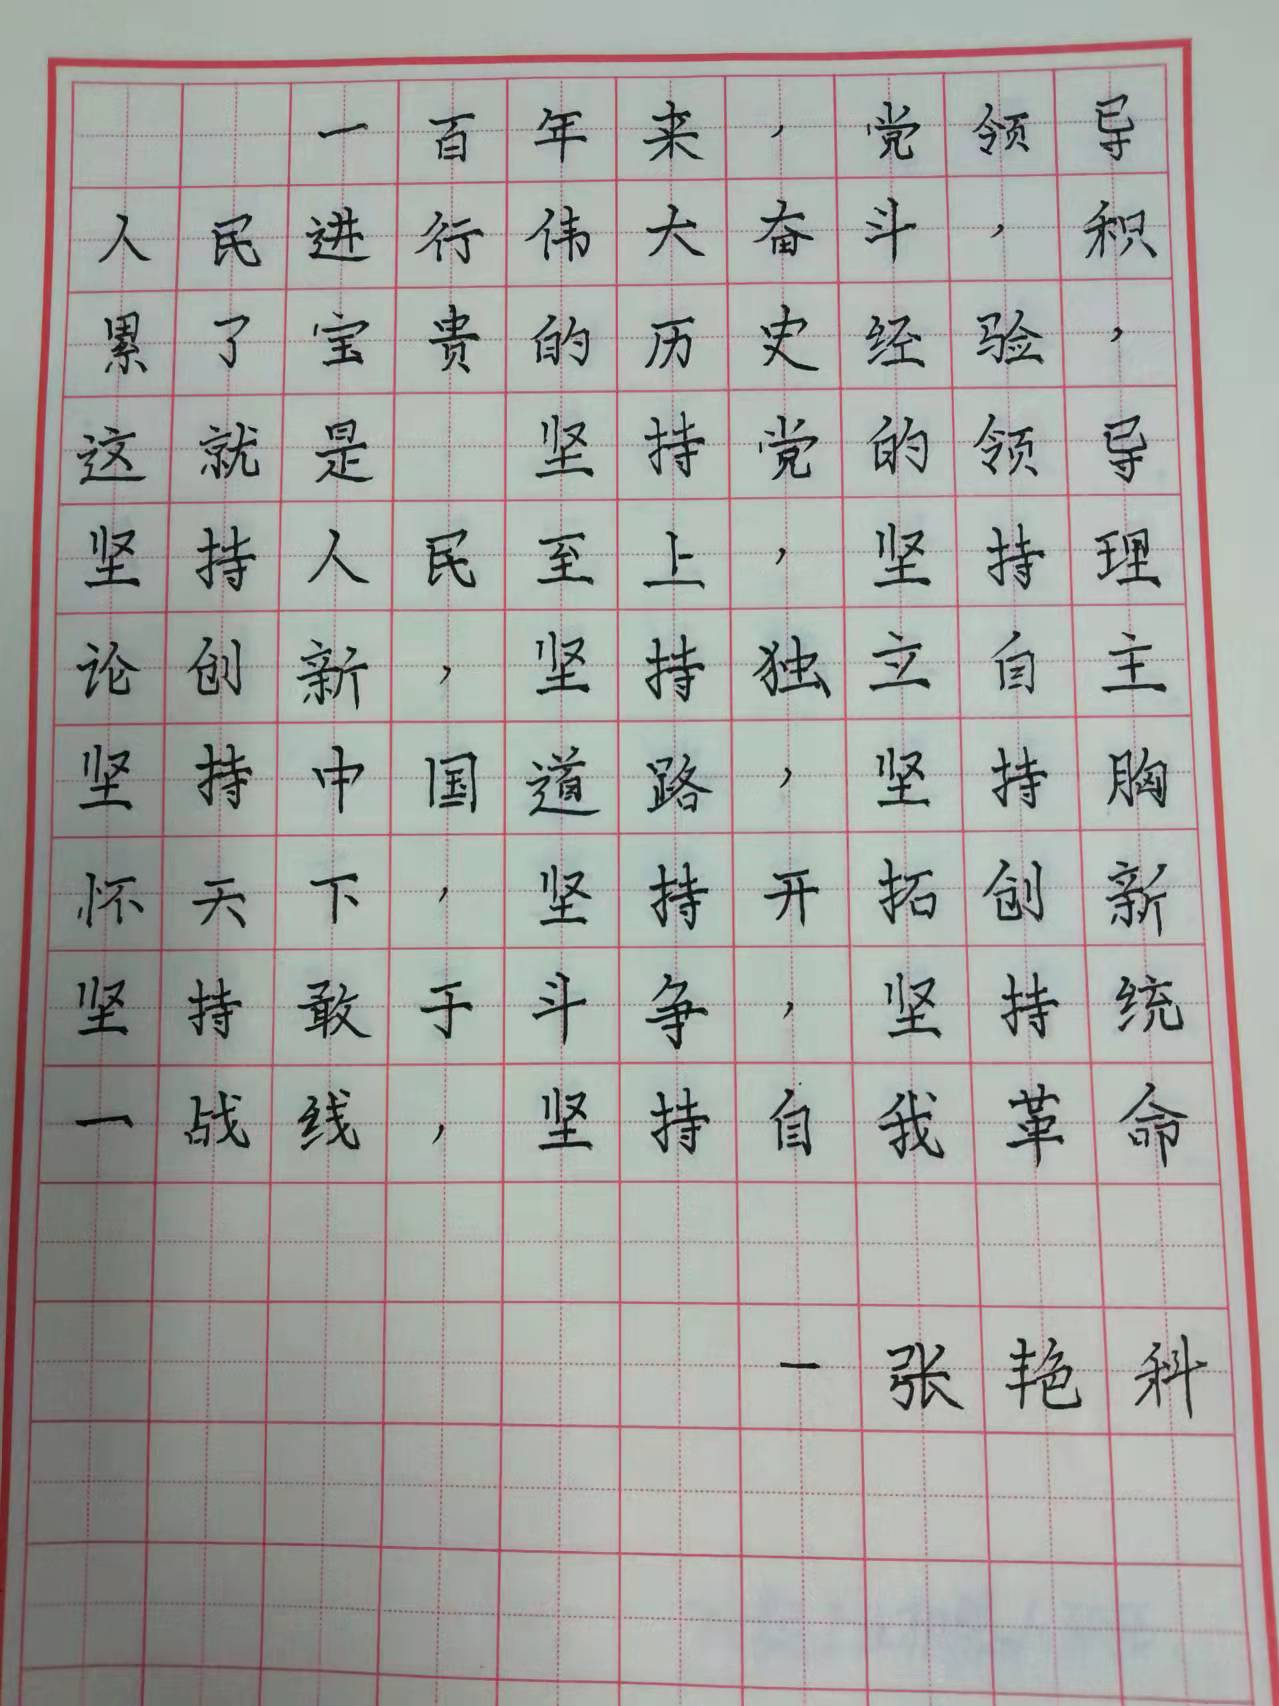 一百年来，党领导
人民进行伟大奋斗，积
累了宝贵的历史经验，
这就是 坚持党的领导
坚持人民至上，坚持理
论创新，坚持独立自主
坚持中国道路，坚持胸
怀天下，坚持开拓创新
坚持敢于斗争，坚持统
一战线，坚持自我革命
一张艳科